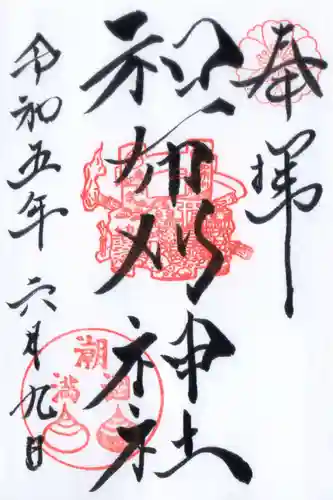 奉拝
和布刈神社
令和五年六月九日
潮
満